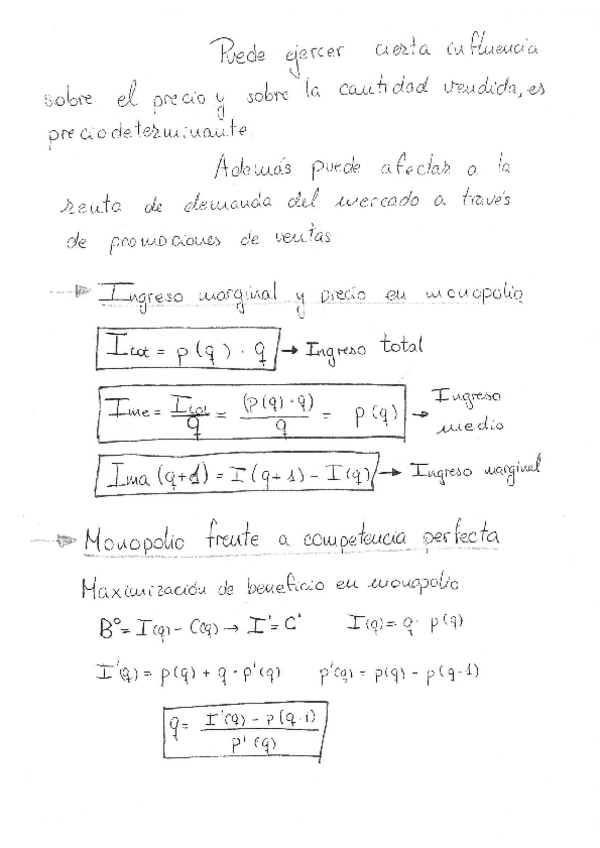 Puede ejercer cierta influencia
sobre el precio y sobre la cantidad vendida, es
precio determinante.
Además puede afectar a la
renta de demanda del mercado a través
de promociones de ventas
Ingreso marginal y precio en monopolio
Itot = p(q) · q → Ingreso total
Ime = Itot/q = (p(q)·q)/q = p(q) → Ingreso medio
Ima (q+1) = I(q+1) - I(q) → Ingreso marginal
Monopolio frente a competencia perfecta
Maximización de beneficio en monopolio
Bº = I(q) - C(q) → I' = C' I(q) = q · p(q)
I'(q) = p(q) + q · p'(q) p'(q) = p(q) - p(q-1)
q = (I'(q) - p(q-1))/p'(q)